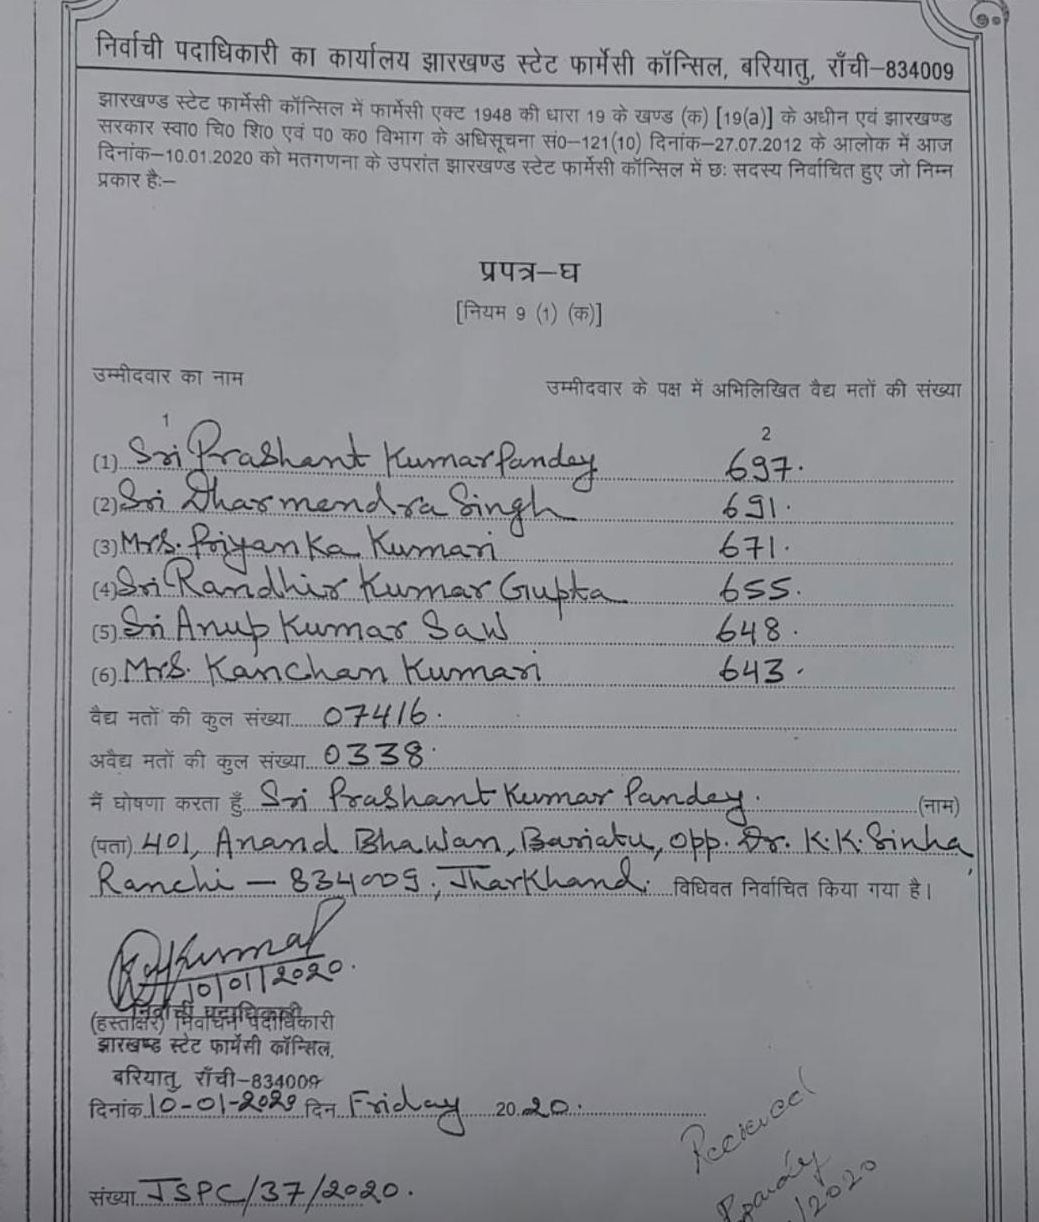 निर्वाची पदाधिकारी का कार्यालय झारखण्ड स्टेट फार्मेसी कॉन्सिल, बरियातु, राँची–834009
झारखण्ड स्टेट फार्मेसी कॉन्सिल में फार्मेसी एक्ट 1948 की धारा 19 के खण्ड (क) [19(a)] के अधीन एवं झारखण्ड
सरकार स्वा0 चि0 शि0 एवं प0 क0 विभाग के अधिसूचना सं0–121(10) दिनांक–27.07.2012 के आलोक में आज
दिनांक–10.01.2020 को मतगणना के उपरांत झारखण्ड स्टेट फार्मेसी कॉन्सिल में छः सदस्य निर्वाचित हुए जो निम्न
प्रकार है:–
प्रपत्र–घ
[नियम 9 (1) (क)]
उम्मीदवार का नाम उम्मीदवार के पक्ष में अभिलिखित वैद्य मतों की संख्या
1 2
(1) Sri Prashant Kumar Pandey 697.
(2) Sri Dharmendra Singh 691.
(3) Mrs. Priyanka Kumari 671.
(4) Sri Randhir Kumar Gupta 655.
(5) Sri Anup Kumar Saw 648.
(6) Mrs. Kanchan Kumari 643.
वैद्य मतों की कुल संख्या 07416.
अवैद्य मतों की कुल संख्या 0338
मैं घोषणा करता हूँ Sri Prashant Kumar Pandey. (नाम)
(पता) 401, Anand Bhawan, Bariatu, Opp. Dr. K.K. Sinha,
Ranchi – 834009, Jharkhand. विधिवत निर्वाचित किया गया है।
10/01/2020.
निर्वाची पदाधिकारी
(हस्ताक्षर) निर्वाचन पदाधिकारी
झारखण्ड स्टेट फार्मेसी कॉन्सिल,
बरियातु, राँची–834009
दिनांक 10-01-2020 दिन Friday 20 20.
संख्या JSPC/37/2020.
Received
/2020